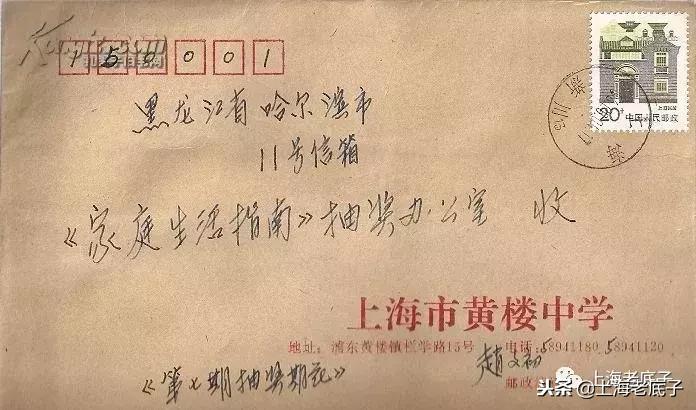 150001
黑龙江省哈尔滨市
11号信箱
《家庭生活指南》抽奖办公室 收
上海民居
20分 中国人民邮政
上海市黄楼中学
地址：浦东黄楼镇栏学路15号 电话：58941180 58941120
赵文初
邮政
《第七期抽奖期记》
上海老底子
头条@上海老底子